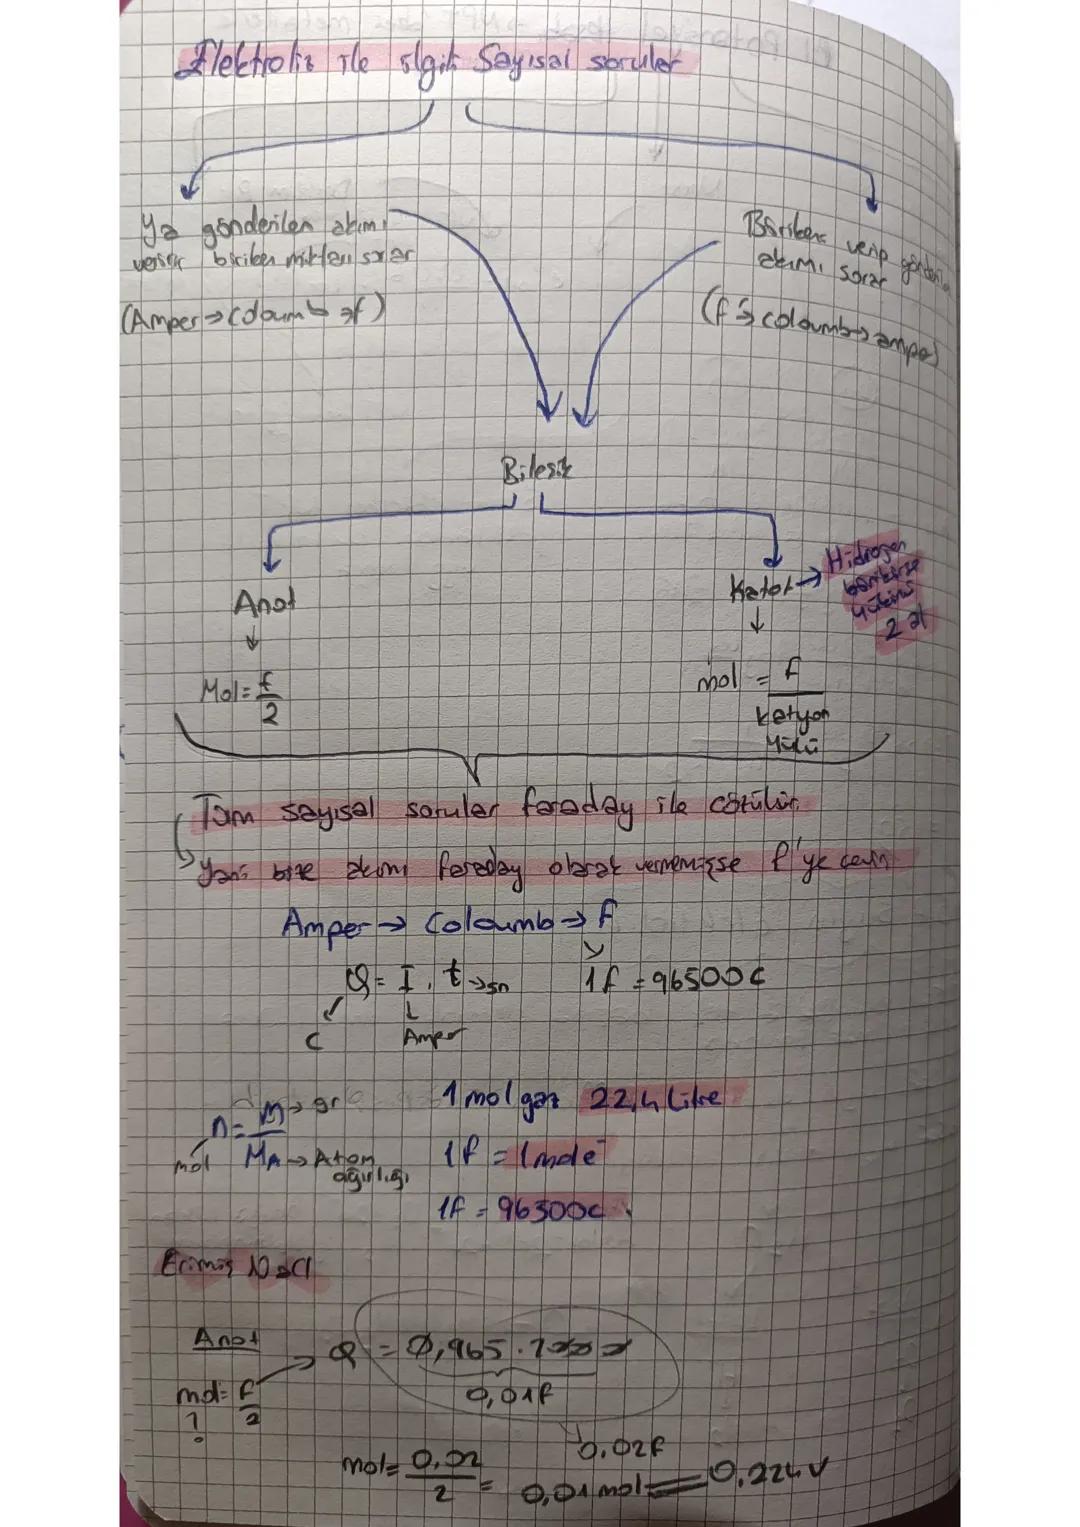 Elektroliz ile ilgili Sayısal sorular
Ya gönderilen akımı
verir biriken miktarı sorar
(Amper → Coloumb → f)
Biriken verip
akımı sorar
(f → coloumb → amper)
Bileşik
Anot
Mol = f/2
Katot → Hidrogen
birikirse
yükünü
2 al
mol = f / katyon yükü
Tüm sayısal sorular faraday ile çözülür.
Yani bize akımı faraday olarak vermemişse f'ye çevir
Amper → Coloumb → f
Q = I . t → sn
C
Amper
1f = 96500 C
n = m → gr
mol
MA → Atom
ağırlığı
1 mol gaz 22,4 Litre
1f = 1 mol e⁻
1f = 96500c.
Erimiş NaCl
Anot
mol = f/2
?
→ Q = 0,965 .
0,01f
0.02f
mol = 0,02/2 = 0,01 mol = 0,224 V